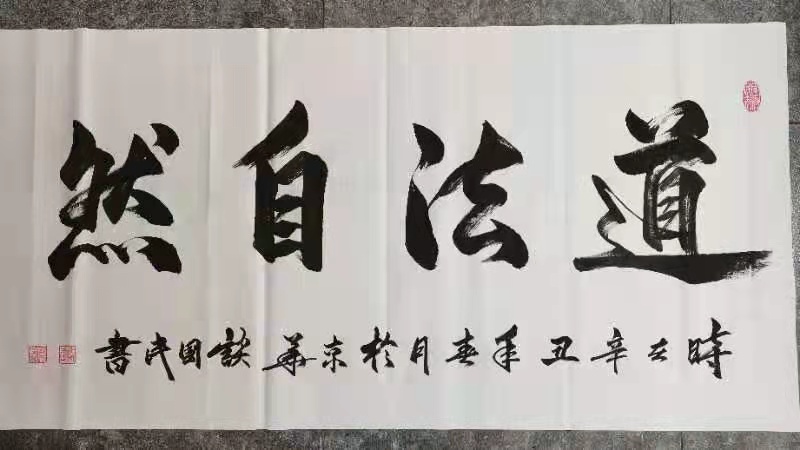 道法自然
時在辛丑年春月於京華談国民書